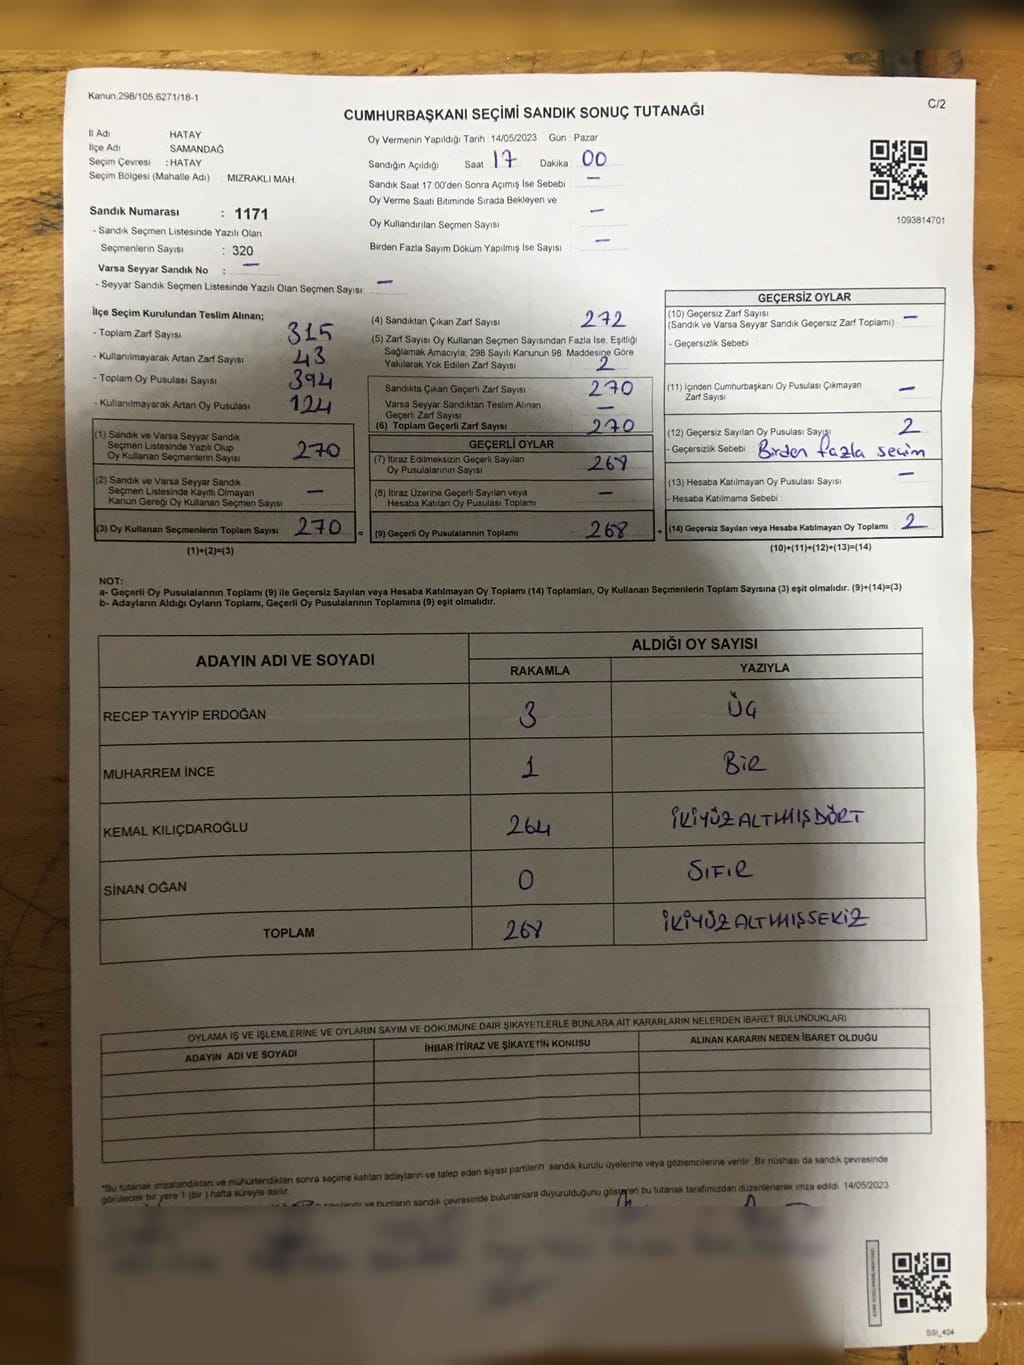 Kanun.298/105,6271/18-1
C/2
CUMHURBAŞKANI SEÇİMİ SANDIK SONUÇ TUTANAĞI
İl Adı HATAY
İlçe Adı SAMANDAĞ
Seçim Çevresi : HATAY
Seçim Bölgesi (Mahalle Adı) : MIZRAKLI MAH
Sandık Numarası : 1171
- Sandık Seçmen Listesinde Yazılı Olan
Seçmenlerin Sayısı : 320
Varsa Seyyar Sandık No : —
- Seyyar Sandık Seçmen Listesinde Yazılı Olan Seçmen Sayısı: —
Oy Vermenin Yapıldığı Tarih : 14/05/2023 Gün : Pazar
Sandığın Açıldığı Saat 17 Dakika : 00
Sandık Saat 17 00'den Sonra Açımış İse Sebebi : —
Oy Verme Saati Bitiminde Sırada Bekleyen ve
Oy Kullandırılan Seçmen Sayısı : —
Birden Fazla Sayım Döküm Yapılmış İse Sayısı : —
1093814701
İlçe Seçim Kurulundan Teslim Alınan;
- Toplam Zarf Sayısı 315
- Kullanılmayarak Artan Zarf Sayısı 43
- Toplam Oy Pusulası Sayısı 394
- Kullanılmayarak Artan Oy Pusulası 124
(1) Sandık ve Varsa Seyyar Sandık
Seçmen Listesinde Yazılı Olup
Oy Kullanan Seçmenlerin Sayısı 270
(2) Sandık ve Varsa Seyyar Sandık
Seçmen Listesinde Kayıtlı Olmayan
Kanun Gereği Oy Kullanan Seçmen Sayısı —
(3) Oy Kullanan Seçmenlerin Toplam Sayısı 270 =
(1)+(2)=(3)
(4) Sandıktan Çıkan Zarf Sayısı : 272
(5) Zarf Sayısı Oy Kullanan Seçmen Sayısından Fazla İse, Eşitliği
Sağlamak Amacıyla, 298 Sayılı Kanunun 98. Maddesine Göre
Yakılarak Yok Edilen Zarf Sayısı : 2
Sandıkta Çıkan Geçerli Zarf Sayısı : 270
Varsa Seyyar Sandıktan Teslim Alınan
Geçerli Zarf Sayısı : —
(6) Toplam Geçerli Zarf Sayısı : 270
GEÇERLİ OYLAR
(7) İtiraz Edilmeksizin Geçerli Sayılan
Oy Pusulalarının Sayısı : 268
(8) İtiraz Üzerine Geçerli Sayılan veya
Hesaba Katılan Oy Pusulası Toplamı : —
(9) Geçerli Oy Pusulalarının Toplamı : 268 +
GEÇERSİZ OYLAR
(10) Geçersiz Zarf Sayısı
(Sandık ve Varsa Seyyar Sandık Geçersiz Zarf Toplamı) : —
- Geçersizlik Sebebi :
(11) İçinden Cumhurbaşkanı Oy Pusulası Çıkmayan
Zarf Sayısı : —
(12) Geçersiz Sayılan Oy Pusulası Sayısı : 2
- Geçersizlik Sebebi : Birden fazla seçim
(13) Hesaba Katılmayan Oy Pusulası Sayısı : —
- Hesaba Katılmama Sebebi :
(14) Geçersiz Sayılan veya Hesaba Katılmayan Oy Toplamı : 2
(10)+(11)+(12)+(13)=(14)
NOT:
a- Geçerli Oy Pusulalarının Toplamı (9) ile Geçersiz Sayılan veya Hesaba Katılmayan Oy Toplamı (14) Toplamları, Oy Kullanan Seçmenlerin Toplam Sayısına (3) eşit olmalıdır. (9)+(14)=(3)
b- Adayların Aldığı Oyların Toplamı, Geçerli Oy Pusulalarının Toplamına (9) eşit olmalıdır.
ADAYIN ADI VE SOYADI ALDIĞI OY SAYISI
RAKAMLA YAZIYLA
RECEP TAYYİP ERDOĞAN 3 ÜÇ
MUHARREM İNCE 1 BİR
KEMAL KILIÇDAROĞLU 264 İKİYÜZALTMIŞDÖRT
SİNAN OĞAN 0 SIFIR
TOPLAM 268 İKİYÜZALTMIŞSEKİZ
OYLAMA İŞ VE İŞLEMLERİNE VE OYLARIN SAYIM VE DÖKÜMÜNE DAİR ŞİKAYETLERLE BUNLARA AİT KARARLARIN NELERDEN İBARET BULUNDUKLARI
ADAYIN ADI VE SOYADI İHBAR İTİRAZ VE ŞİKAYETİN KONUSU ALINAN KARARIN NEDEN İBARET OLDUĞU
"Bu tutanak imzalandıktan ve mühürlendikten sonra seçime katılan adayların ve talep eden siyasi partilerin sandık kurulu üyelerine veya gözlemcilerine verilir. Bir nüshası da sandık çevresinde
görülecek bir yere 1 (bir ) hafta süreyle asılır.
sayılarını ve bunların sandık çevresinde bulunanlara duyurulduğunu gösteren bu tutanak tarafımızdan düzenlenerek imza edildi. 14/05/2023
SSI_404